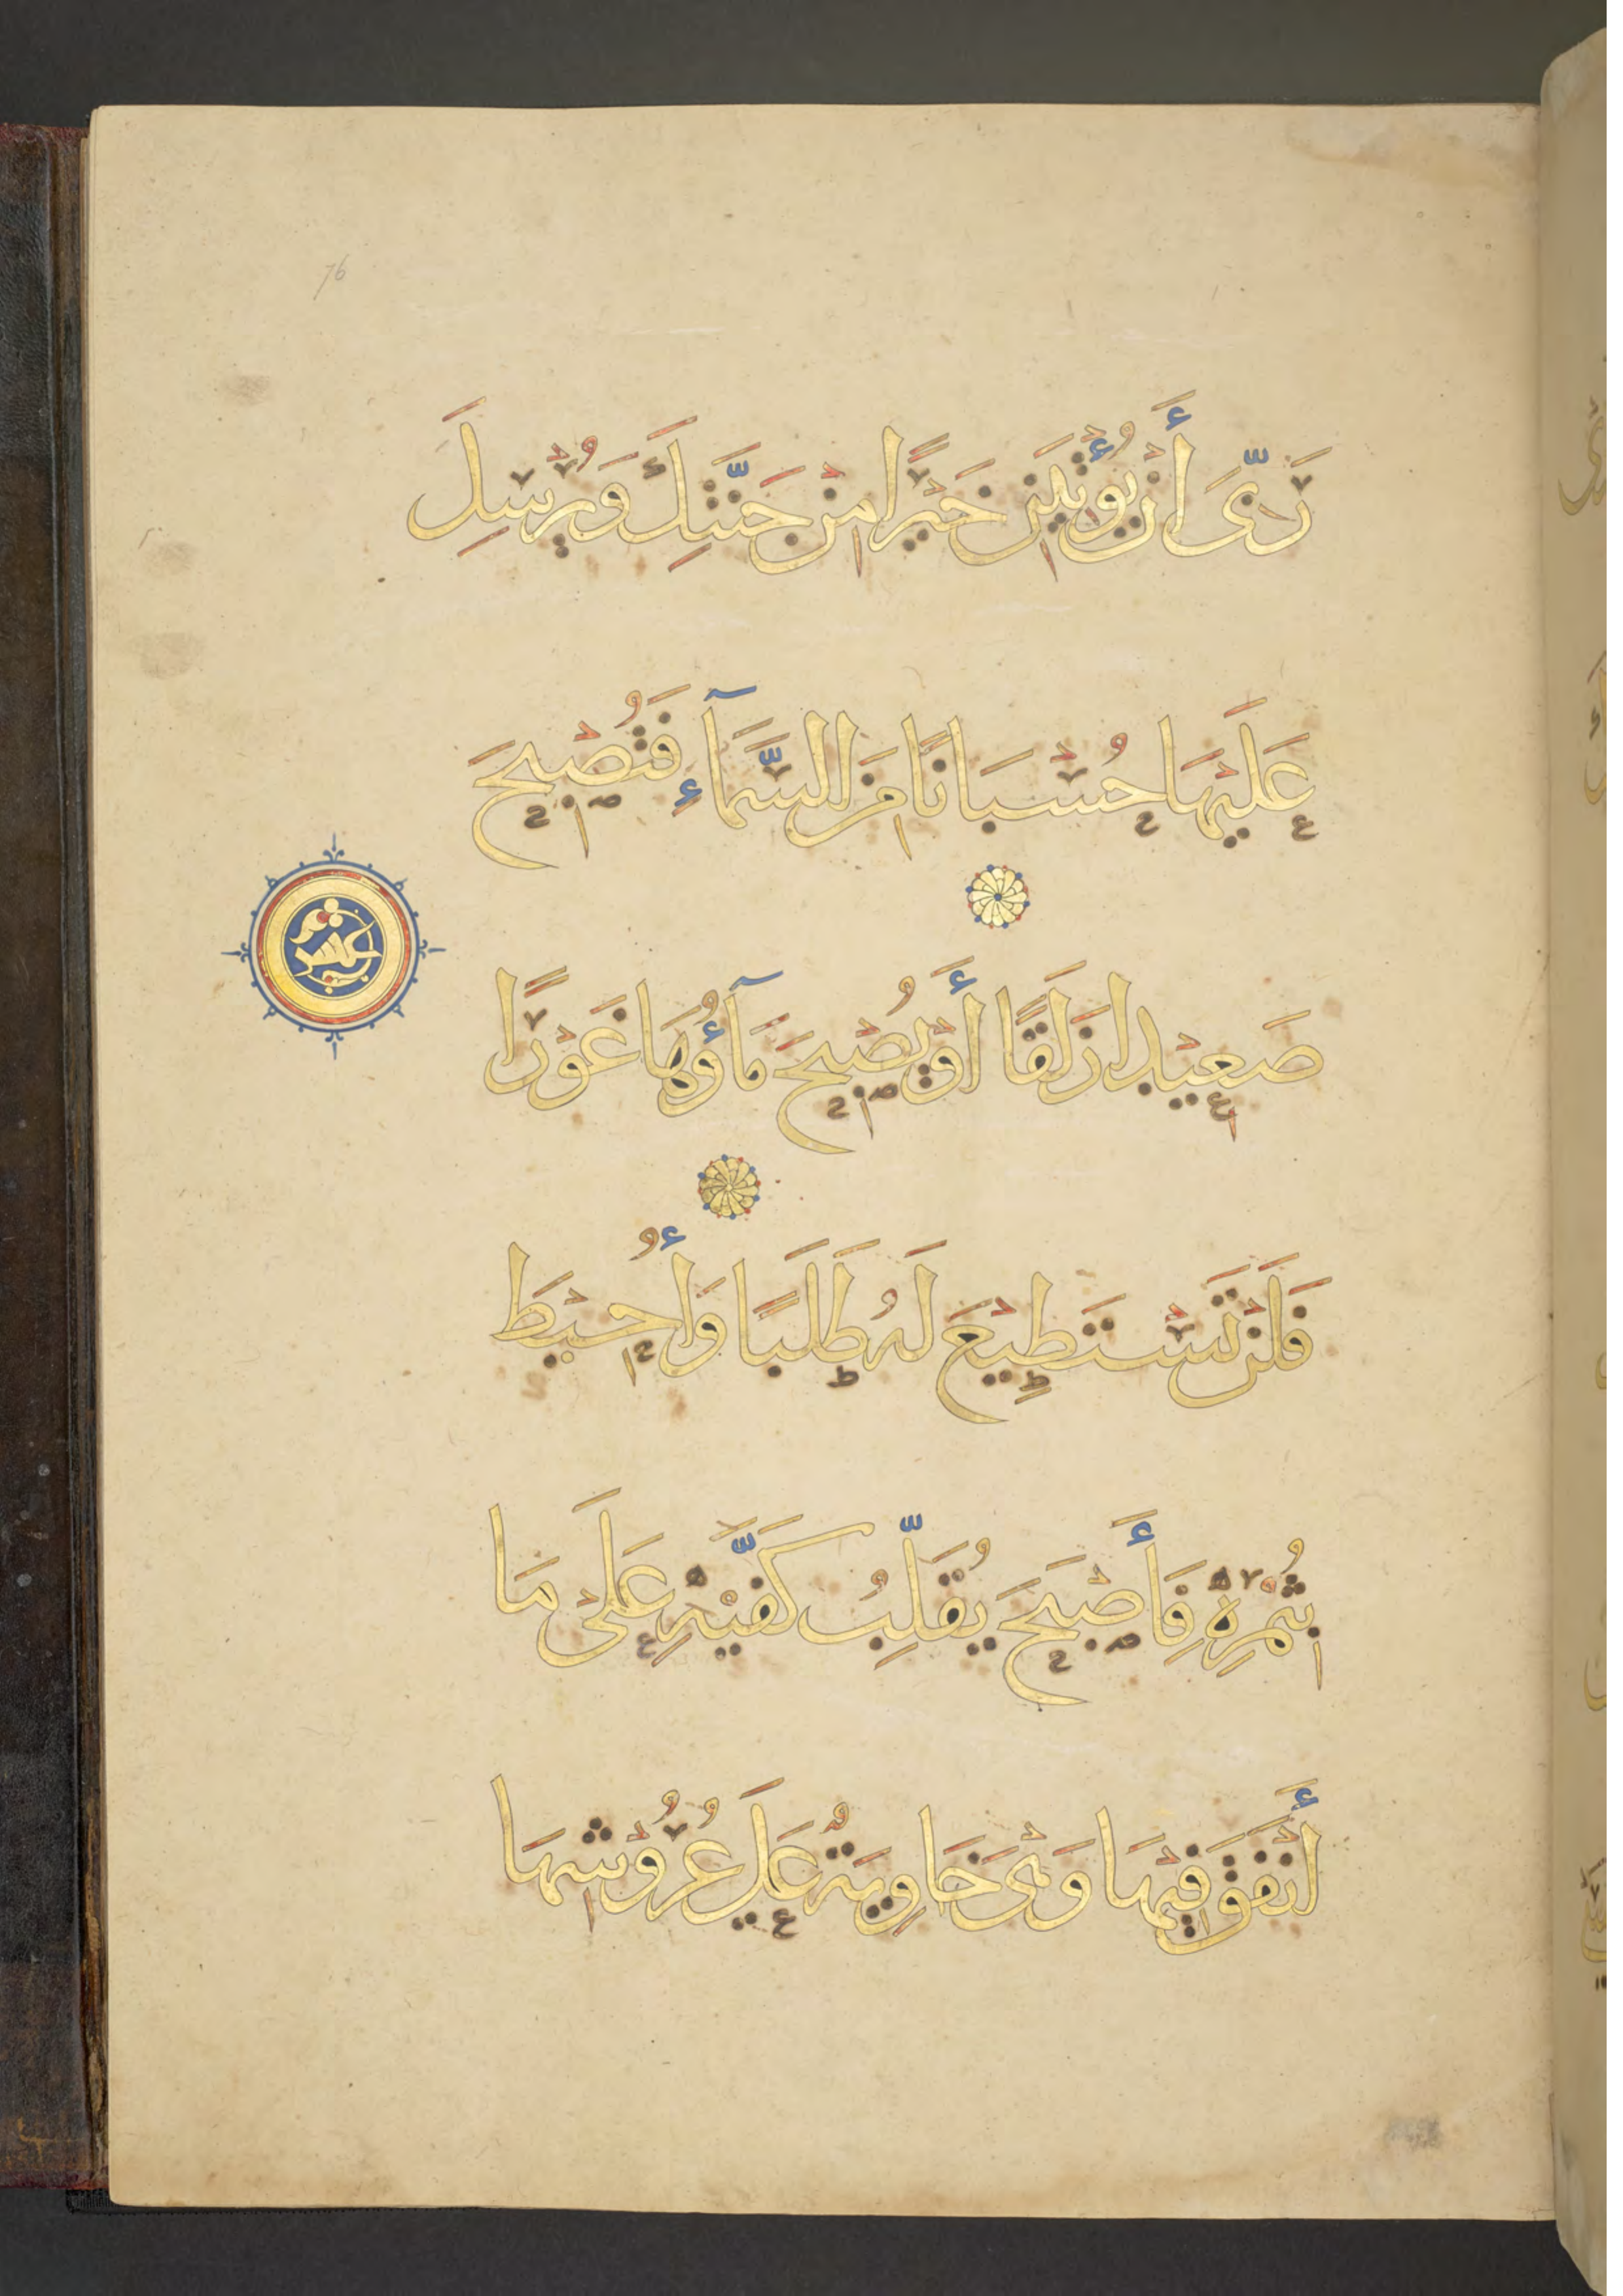 76
رَبِّىَ أَنْ يُؤْتِيَنِ خَيْرًا مِنْ جَنَّتِكَ وَيُرْسِلَ
عَلَيْهَا حُسْبَانًا مِنَ السَّمَآءِ فَتُصْبِحَ
صَعِيْدًا زَلَقًا أَوْ يُصْبِحَ مَآؤُهَا غَوْرًا
عشر
فَلَنْ تَسْتَطِيْعَ لَهُ طَلَبًا وَأُحِيْطَ
بِثُمْرِهِ فَأَصْبَحَ يُقَلِّبُ كَفَّيْهِ عَلَىْ مَا
أَنْفَقَ فِيْهَا وَهْىَ خَاوِيَةٌ عَلَى عُرُوْشِهَا